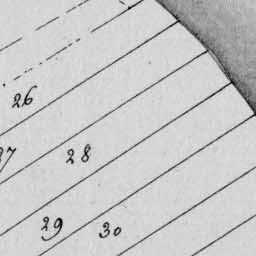 26
27 28
29 30